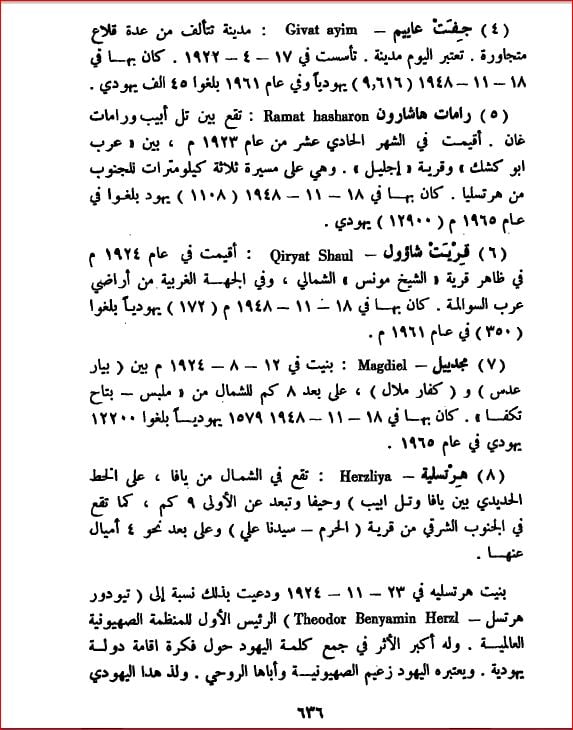 (٤) جِفِتَتْ عاييم – Givat ayim : مدينة تتألف من عدة قلاع
متجاورة . تعتبر اليوم مدينة . تأسست في ١٧ – ٤ – ١٩٢٢ . كان بهـا في
١٨ – ١١ – ١٩٤٨ (٩,٦١٦) يهودياً وفي عام ١٩٦١ بلغوا ٤٥ الف يهودي .
(٥) رامات هاشارون Ramat hasharon : تقع بين تل أبيب ورامات
غان . أقيمت في الشهر الحادي عشر من عام ١٩٢٣ م ، بين « عرب
ابو كشك » وقرية « إجليل » . وهي على مسيرة ثلاثة كيلومترات للجنوب
من هرتسليا . كان بهـا في ١٨ – ١١ – ١٩٤٨ ( ١١٠٨ ) يهود بلغـوا في
عـام ١٩٦٥ م ( ١٢٩٠٠ ) يهودي .
(٦) قِرْيَتْ شاؤول – Qiryat Shaul : أقيمت في عام ١٩٢٤ م
في ظاهر قرية « الشيخ مونس » الشمالي ، وفي الجهـة الغربية من أراضي
عرب السوالمة . كان بهـا في ١٨ – ١١ – ١٩٤٨ م ( ١٧٢ ) يهوديـاً بلغوا
( ٣٥٠ ) في عـام ١٩٦١ م .
(٧) مجدييل – Magdiel : بنيت في ١٢ – ٨ – ١٩٢٤ م بين ( بيار
عدس ) و ( كفار ملال ) ، على بعد ٨ كم للشمال من « ملبس – بتاح
تكفـا » . كان بهـا في ١٨ – ١١ – ١٩٤٨ ١٥٧٩ يهوديـاً بلغوا ١٢٢٠٠
يهودي في عام ١٩٦٥ .
(٨) هِرْتسلية – Herzliya : تقع في الشمال من يافا ، على الخط
الحديدي بين يافا وتـل ابيب ) وحيفا وتبعد عن الأولى ٩ كم ، كما تقع
في الجنوب الشرقي من قرية ( الحرم – سيدنا علي ) وعلى بعد نحو ٤ أميال
عنهـا .
بنيت هرتسليه في ٢٣ – ١١ – ١٩٢٤ ودعيت بذلك نسبة إلى ( تيودور
هرتسل – Theodor Benyamin Herzl ) الرئيس الأول للمنظمة الصهيونية
العالميـة . وله أكبر الأثر في جمع كلمـة اليهود حول فكرة اقامة دولـة
يهودية . ويعتبره اليهود زعيم الصهيونيـة وأباها الروحي . ولد هذا اليهودي
٦٣٦